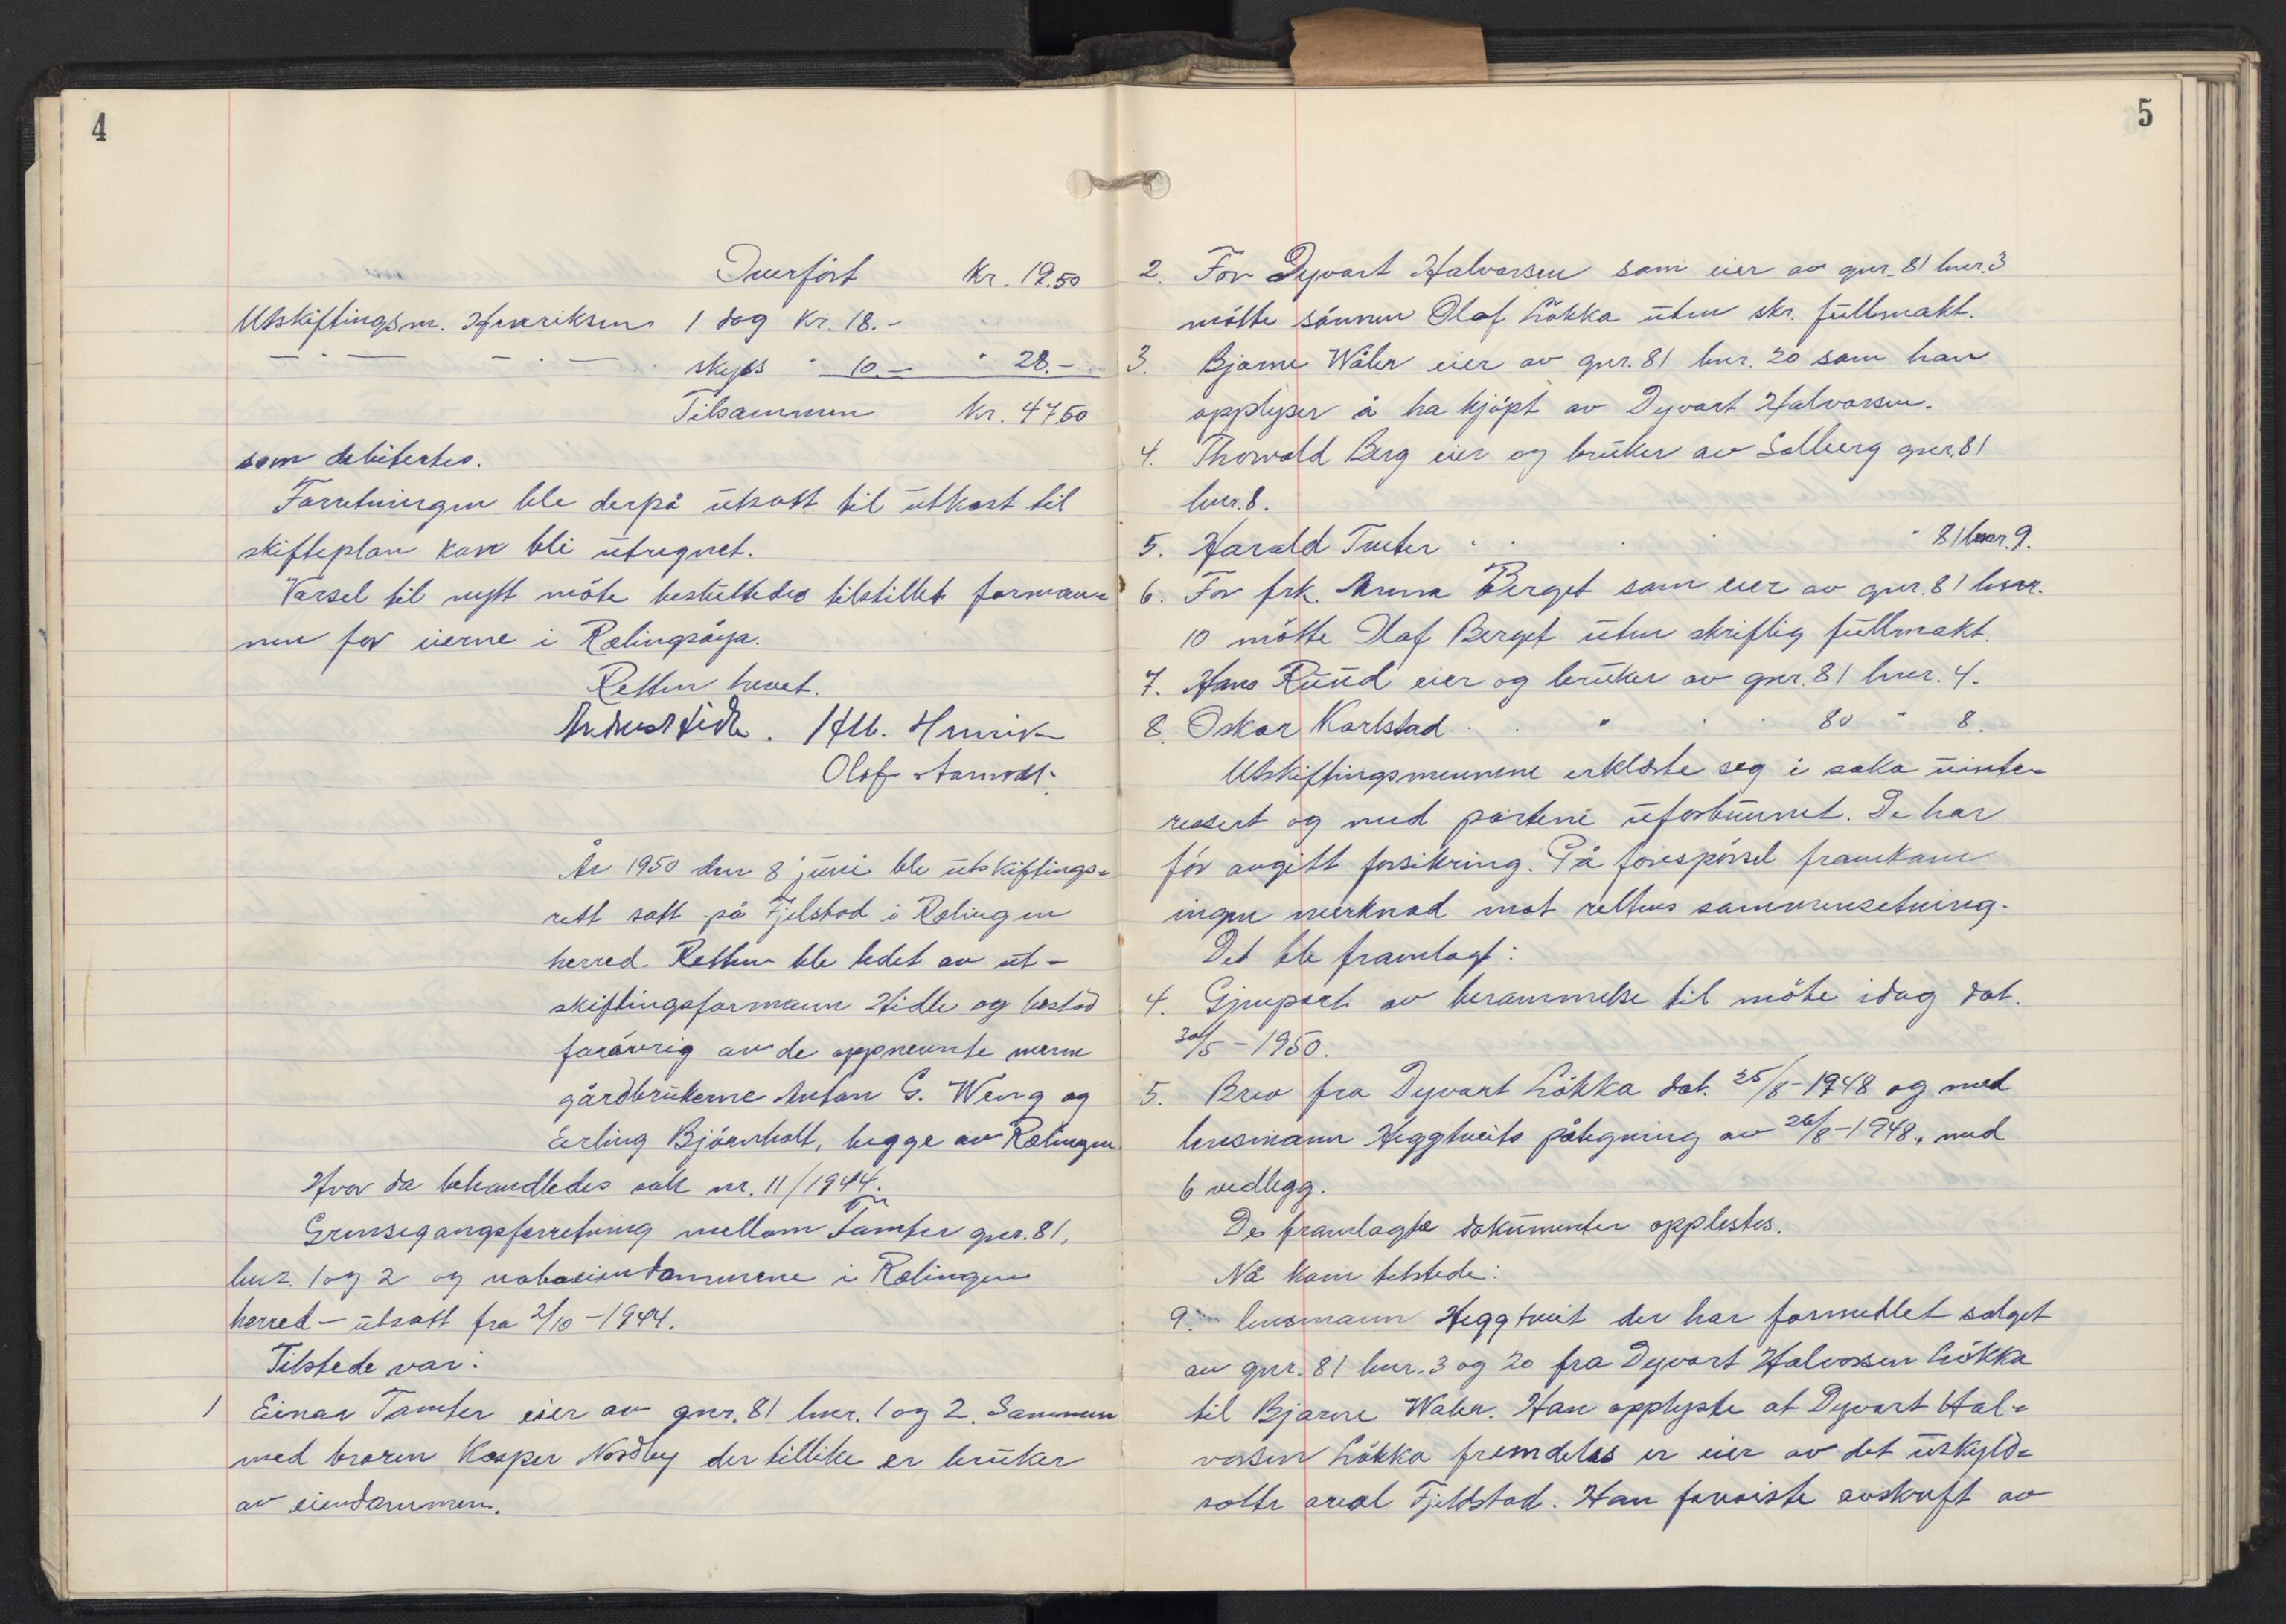 4
Overført Kr. 19.50
Utskiftingsm. Henriksen 1 dag Kr. 18.-
— " — — " — skyss " 10.- " 28.-
Tilsammen Kr. 47.50
som debitertes.
Forretningen ble derpå utsatt til utkast til
skifteplan kan bli utregnet.
Varsel til nytt møte besluttedes tilstillet forman-
nen for eierne i Rælingsøya.
Retten hevet.
Hidle. Alb. Henrik
Olaf Aamodt.
År 1950 den 8 juni ble utskiftings-
rett satt på Fjelstad i Rælingen
herred. Retten ble ledet av ut-
skiftingsformann Hidle og bestod
forøvrig av de oppnevnte menn
gårdbrukerne Anton G. Weng og
Erling Bjørnholt, begge av Rælingen.
Hvor da behandledes sak nr. 11/1944.
Grensegangsforretning mellom Tamter gnr. 81,
bnr. 1 og 2 og naboeiendommene i Rælingen
herred - utsatt fra 2/10 - 1944.
Tilstede var:
1 Einar Tamter eier av gnr. 81 bnr. 1 og 2. Sammen
med broren Kasper Nordby der tillike er bruker
av eiendommen.
5
2. For Dyvart Halvorsen som eier av gnr. 81 bnr. 3
møtte sønnen Olaf Løkka uten skr. fullmakt.
3. Bjarne Waler eier av gnr. 81 bnr. 20 som han
opplyser å ha kjøpt av Dyvart Halvorsen.
4. Thorvald Berg eier og bruker av Solberg gnr. 81
bnr. 8.
5. Harald Tmter " " " " " 81 bnr. 9.
6. For frk. Anna Berget som eier av gnr. 81 bnr.
10 møtte Olaf Berget uten skriftlig fullmakt.
7. Hans Rund eier og bruker av gnr. 81 bnr. 4.
8. Oskar Karlstad " " " " " 80 " 8.
Utskiftingsmennene erklærte seg i saka uinte-
ressert og med partene uforbunnet. De har
før avgitt forsikring. På forespørsel framkom
ingen merknad mot rettens sammensetning.
Det ble framlagt:
4. Gjenpart av berammelse til møte idag dat.
30/5 - 1950.
5. Brev fra Dyvart Løkka dat. 25/8 - 1948 og med
lensmann Heggtveits påtegning av 26/8 - 1948, med
6 vedlegg.
De framlagte dokumenter opplestes.
Nå kom tilstede:
9. lensmann Heggtveit der har formidlet salget
av gnr. 81 bnr. 3 og 20 fra Dyvart Halvorsen Løkka
til Bjarne Waler. Han opplyste at Dyvart Hal-
vorsen Løkka fremdeles er eier av det uskyld-
satte areal Fjeldstad. Han foreviste avskrift av